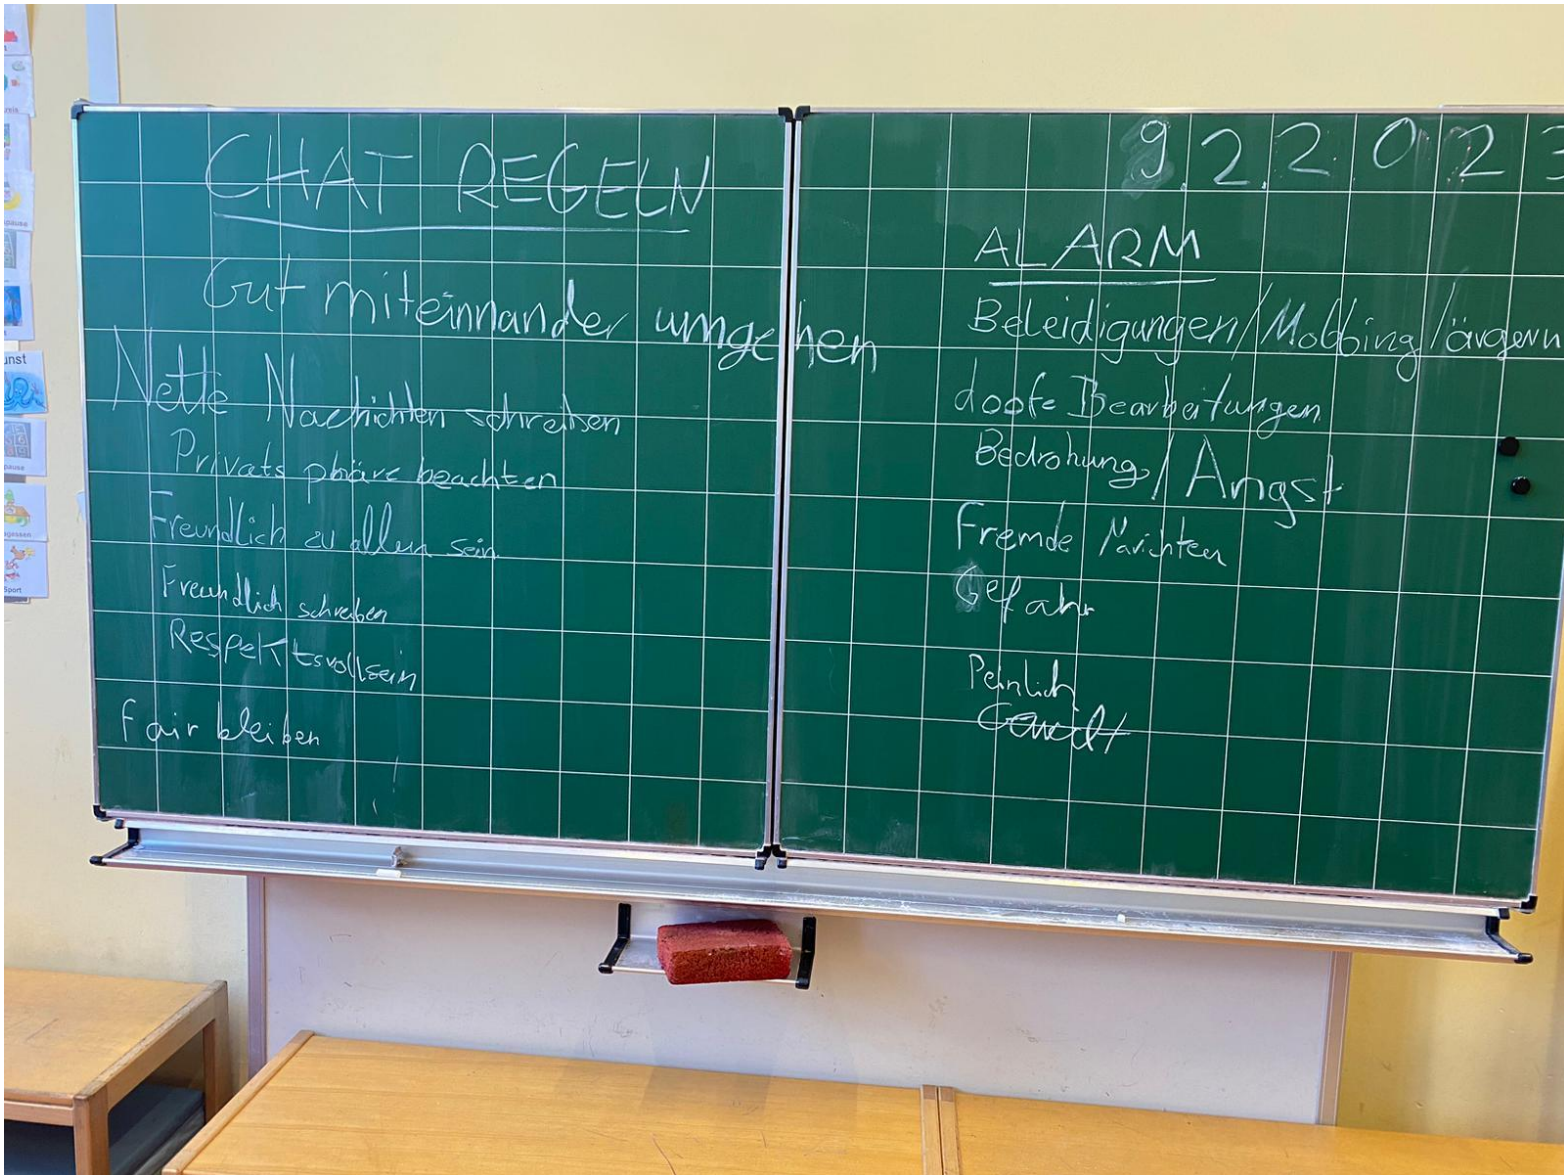 CHAT REGELN
Gut miteinnander umgehen
Nette Nachichten schreiben
Privats phäre beachten
Freundlich zu allen sein
Freundlich schreiben
Respektsvollsein
fair bleiben
9.2.2023
ALARM
Beleidigungen/Mobbing/ärgern
doofe Bearbeitungen
Bedrohung/Angst
Fremde Narichten
Gefahr
Peinlich
Gewalt
unst
pause
Sport